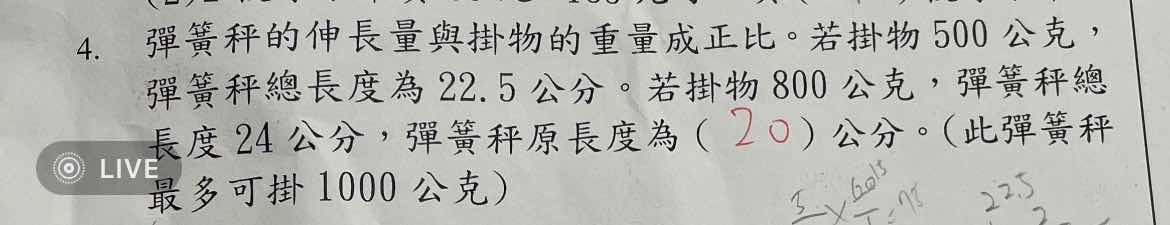 4. 彈簧秤的伸長量與掛物的重量成正比。若掛物 500 公克，
彈簧秤總長度為 22.5 公分。若掛物 800 公克，彈簧秤總
長度 24 公分，彈簧秤原長度為（ 20 ）公分。(此彈簧秤
LIVE
最多可掛 1000 公克)
22.5